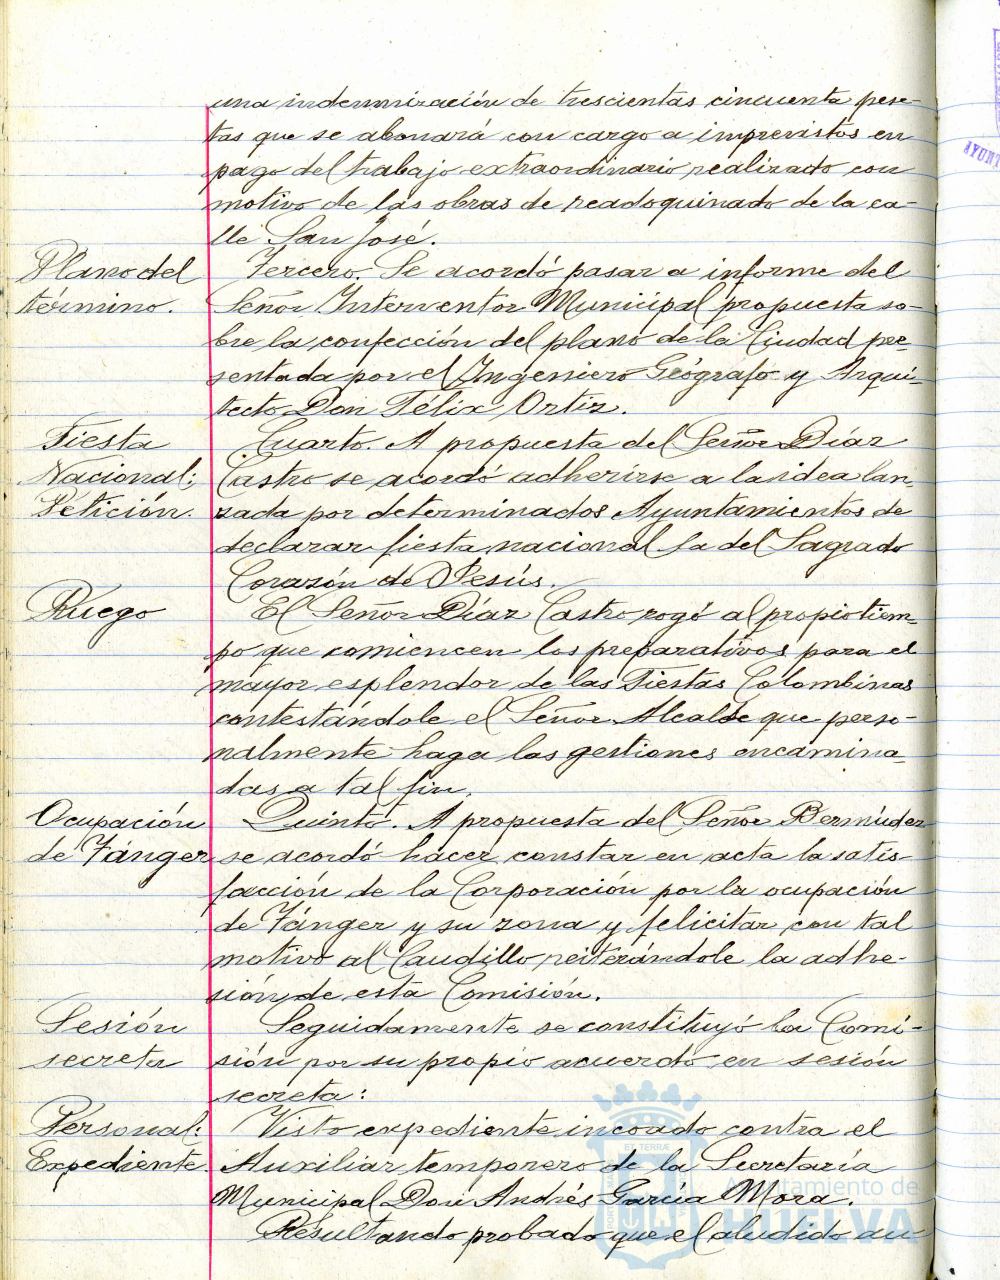 una indemnización de trescientas cincuenta pese-
tas que se abonará con cargo a imprevistos en
pago del trabajo extraordinario realizado con
motivo de las obras de readoquinado de la ca-
lle San José.
Plano del
término.
Tercero. Se acordó pasar a informe del
Señor Interventor Municipal propuesta so-
bre la confección del plano de la Ciudad pre-
sentada por el Ingeniero Geógrafo y Arqui-
tecto Don Félix Ortiz.
Fiesta
Nacional:
Petición.
Cuarto. A propuesta del Señor Díaz
Castro se acordó adherirse a la idea lan-
zada por determinados Ayuntamientos de
declarar fiesta nacional la del Sagrado
Corazón de Jesús.
Ruego
El Señor Díaz Castro rogó al propio tiem-
po que comiencen los preparativos para el
mayor esplendor de las Fiestas Colombinas
contestándole el Señor Alcalde que perso-
nalmente haga las gestiones encamina-
das a tal fin.
Ocupación
de Tánger
Quinto. A propuesta del Señor Bermúdez
se acordó hacer constar en acta la satis-
facción de la Corporación por la ocupación
de Tánger y su zona y felicitar con tal
motivo al Caudillo reiterándole la adhe-
sión de esta Comisión.
Sesión
secreta
Seguidamente se constituyó la Comi-
sión por su propio acuerdo en sesión
secreta:
Personal:
Expediente.
Visto expediente incoado contra el
Auxiliar temporero de la Secretaría
Municipal Don Andrés García Mora.
Resultando probado que el aludido au-
AYUNT
Ayuntamiento de
HUELVA